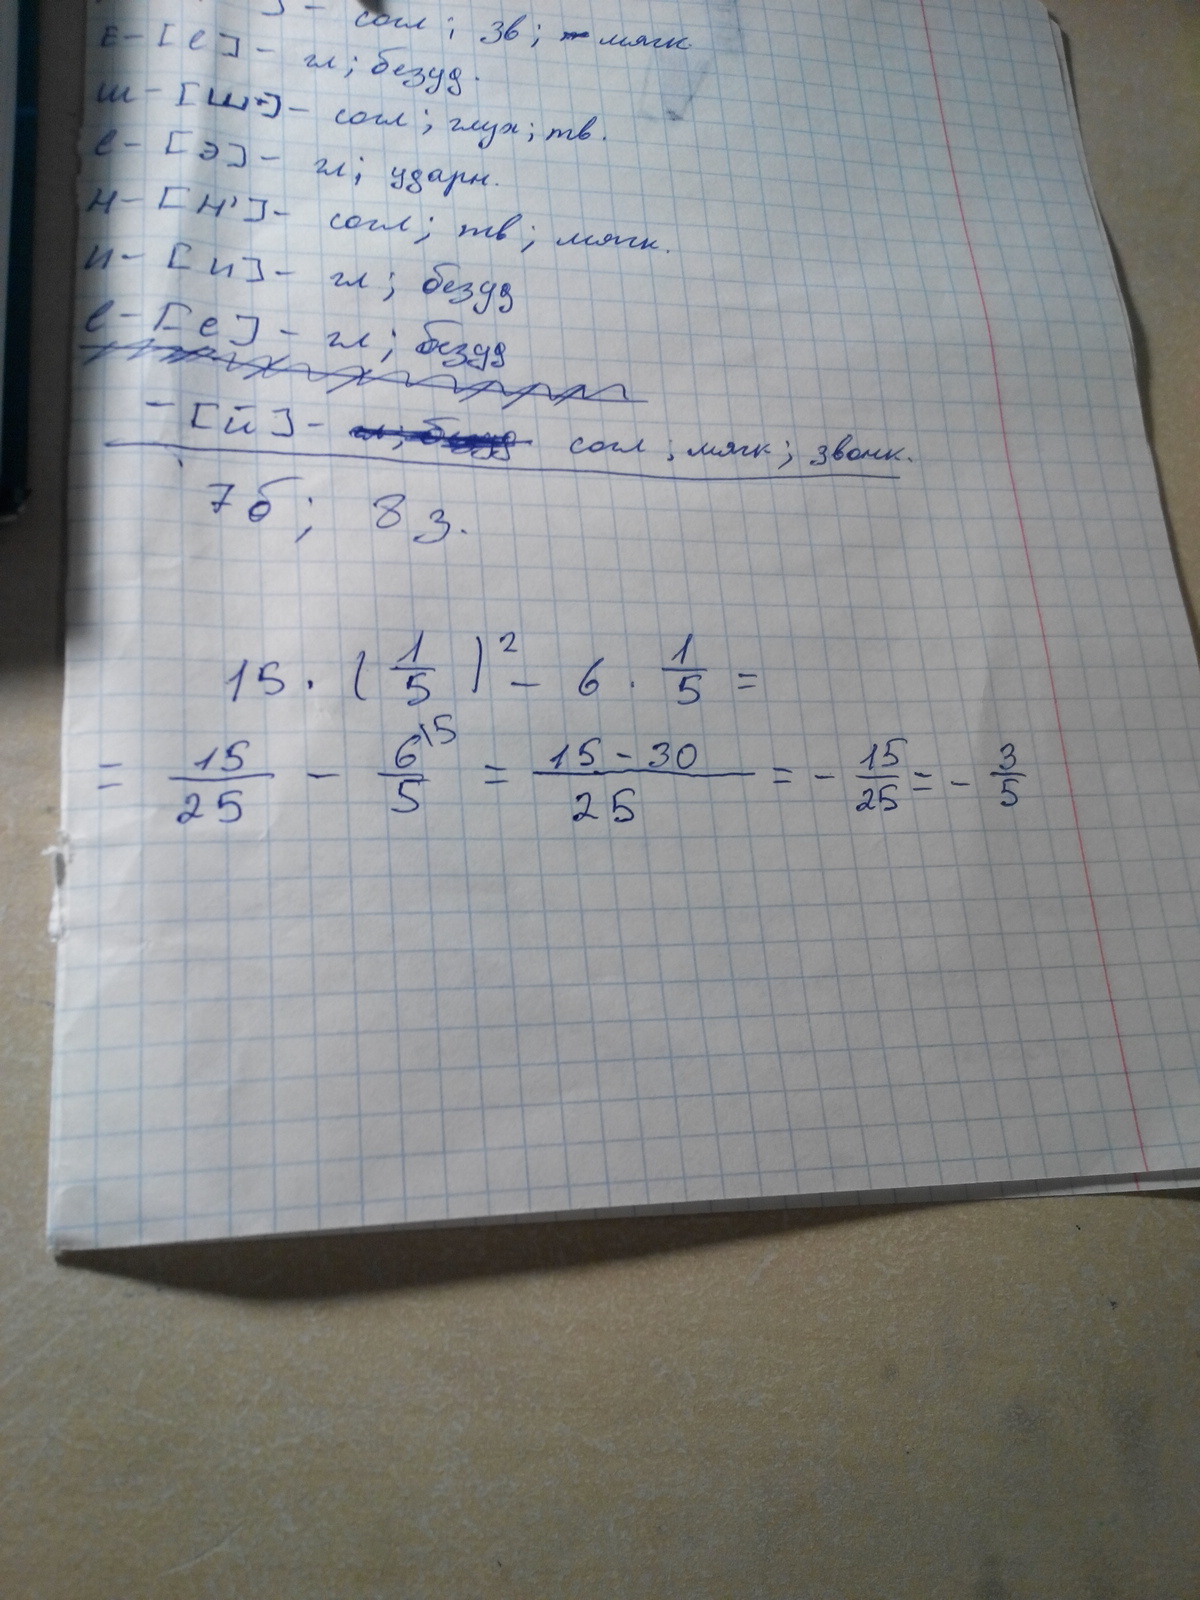 ] - согл; зв; мягк
Е - [е] - гл; безуд.
ш - [ш] - согл; глух; тв.
е - [э] - гл; ударн.
н - [н'] - согл; тв; мягк.
и - [и] - гл; безуд
е - [е] - гл; безуд
- [й] - гл; безуд согл; мягк; звонк.
7б; 8з.
15 · (1/5)² - 6 · 1/5 =
= 15/25 - 6\5/5 = 15-30/25 = - 15/25 = - 3/5